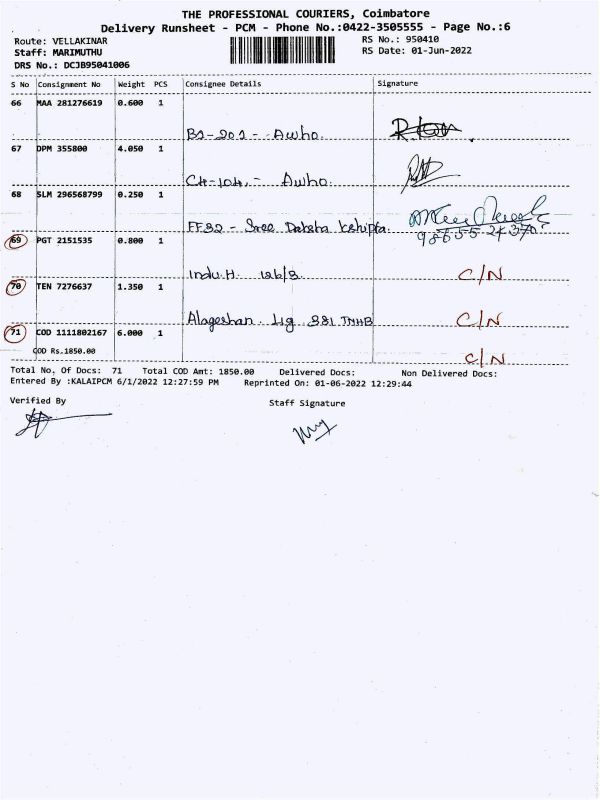 THE PROFESSIONAL COURIERS, Coimbatore
Delivery Runsheet - PCM - Phone No.:0422-3505555 - Page No.:6
Route: VELLAKINAR
RS No.: 950410
Staff: MARIMUTHU
RS Date: 01-Jun-2022
DRS No.: DCJB95041006
S No Consignment No Weight PCS Consignee Details Signature
66 MAA 281276619 0.600 1
B2-202 - Awho.
67 DPM 355800 4.050 1
C4-104.- Awho.
68 SLM 296568799 0.250 1
FF32 - Sree Daksha
98655 24370
69 PGT 2151535 0.800 1
Indu.H. 126/3 C/N
70 TEN 7276637 1.350 1
Alageshan. Lig 381 TNHB C/N
71 COD 1111802167 6.000 1
COD Rs.1850.00 C/N
Total No. Of Docs: 71 Total COD Amt: 1850.00 Delivered Docs: Non Delivered Docs:
Entered By :KALAIPCM 6/1/2022 12:27:59 PM Reprinted On: 01-06-2022 12:29:44
Verified By Staff Signature